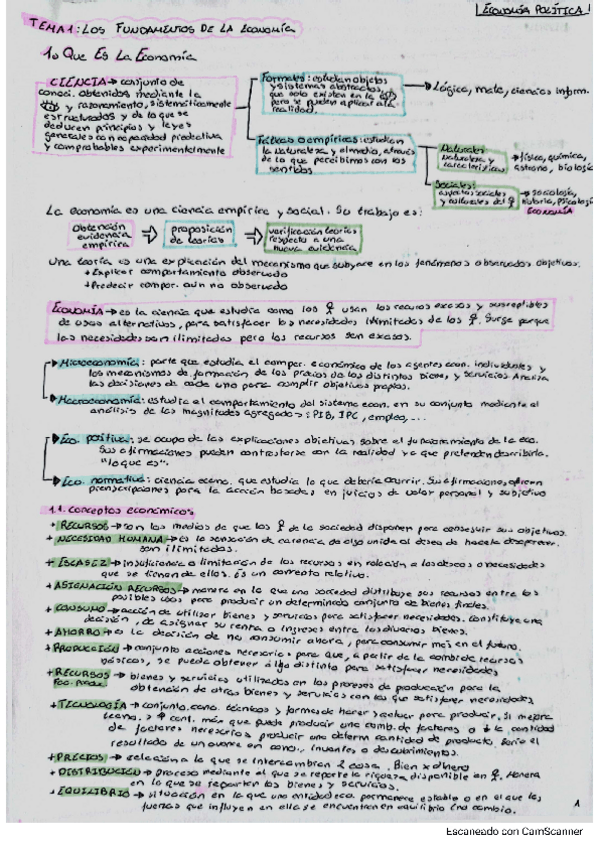 ECONOMÍA POLÍTICA
TEMA 1: LOS FUNDAMENTOS DE LA ECONOMÍA
1. Que Es La Economía
CIENCIA → conjunto de
conoci. obtenidos mediante la
y razonamiento, sistemáticamente
estructurados y de lo que se
deducen principios y leyes
generales con capacidad predictiva
y comprobables experimentalmente
Formales: estudian objetos
y sistemas abstractos
que solo existen en la
pero se pueden aplicar a la
realidad.
→ Lógica, mate, ciencias inform.
Fácticas o empíricas: estudian
la naturaleza y el medio, através
de lo que percibimos con los
sentidos
Naturales:
naturaleza y
características
→ física, química,
astrono, biología
Sociales:
aspectos sociales
y culturales del
→ sociología,
historia, psicología
ECONOMÍA
La economía es una ciencia empírica y social. Su trabajo es:
obtención
evidencia
empírica
⇨ proposición
de teorías
⇨ verificación teorías
respecto a una
nueva evidencia
Una teoría es una explicación del mecanismo que subyace en los fenómenos observados objetivos.
+ Explicar comportamiento observado
+ Predecir compor. aún no observado
ECONOMÍA → es la ciencia que estudia como los usan los recursos escasos y susceptibles
de usos alternativos, para satisfacer las necesidades ilimitadas de los . Surge porque
las necesidades son ilimitadas pero los recursos son escasos.
Microeconomía: parte que estudia el compor. económico de los agentes econ. individuales y
los mecanismos de formación de los precios de los distintos bienes y servicios. Analiza
las decisiones de cada uno para cumplir objetivos propios.
Macroeconomía: estudia el comportamiento del sistema econ. en su conjunto mediante el
análisis de las magnitudes agregadas: PIB, IPC, empleo, ...
Eco. positiva: se ocupa de las explicaciones objetivas sobre el funcionamiento de la eco.
Sus afirmaciones pueden contrastarse con la realidad ya que pretenden describirla.
"lo que es".
Eco. normativa: ciencia econo. que estudia lo que debería ocurrir. Sus afirmaciones, ofrecen
prescripciones para la acción basadas en juicios de valor personal y subjetivo
1.1. conceptos económicos
+ RECURSOS → son los medios de que los de la sociedad disponen para conseguir sus objetivos.
+ NECESIDAD HUMANA → es la sensación de carencia de algo unida al deseo de hacerla desaparecer.
son ilimitadas.
+ ESCASEZ → insuficiencia o limitación de los recursos en relación a los deseos o necesidades
que se tienen de ellos. Es un concepto relativo.
+ ASIGNACIÓN RECURSOS → manera en la que una sociedad distribuye sus recursos entre los
posibles usos para producir un determinado conjunto de bienes finales.
+ CONSUMO → acción de utilizar bienes y servicios para satisfacer necesidades. Constituye una
decisión, de asignar su renta o ingresos entre los diversos bienes.
+ AHORRO → es la decisión de no consumir ahora, para consumir más en el futuro.
+ PRODUCCIÓN → conjunto acciones necesarias para que, a partir de la combi. de recursos
básicos, se pueda obtener algo distinto para satisfacer necesidades
+ RECURSOS → bienes y servicios utilizados en los procesos de producción para la
obtención de otros bienes y servicios con los que satisfacer necesidades
+ TECNOLOGÍA → conjunto cono. técnicos y formas de hacer y actuar para producir. Si mejora
cant. más que puede producir una comb. de factores o la cantidad
de factores necesarios producir una determ cantidad de producto. Sería el
resultado de un avance en conoci., inventos o descubrimientos.
+ PRECIOS → relación a la que se intercambian 2 cosas. Bien x dinero
+ DISTRIBUCIÓN → proceso mediante el que se reparte la riqueza disponible en . Manera
en la que se reparten los bienes y servicios.
+ EQUILIBRIO → situación en la que una entidad eco. permanece estable o en el que las
fuerzas que influyen en ella se encuentran en equilibrio (no cambio.
1
Escaneado con CamScanner